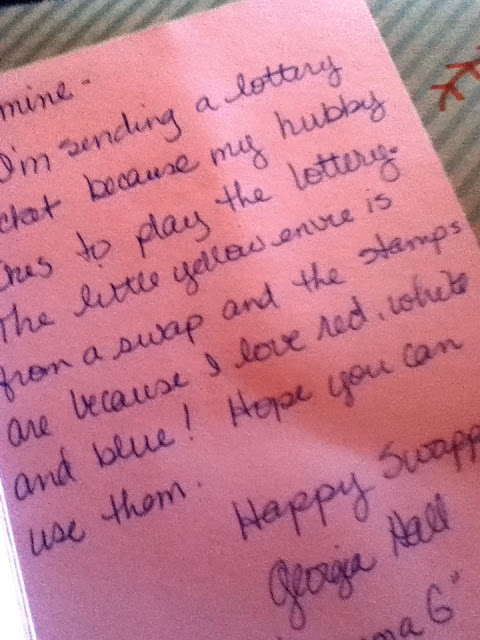 mine -
I'm sending a lottery
because my hubby
to play the lottery.
The little yellow envie is
from a swap and the stamps
are because I love red, white
and blue! Hope you can
use them.
Happy Swapp
Georgia Hall
ma G"